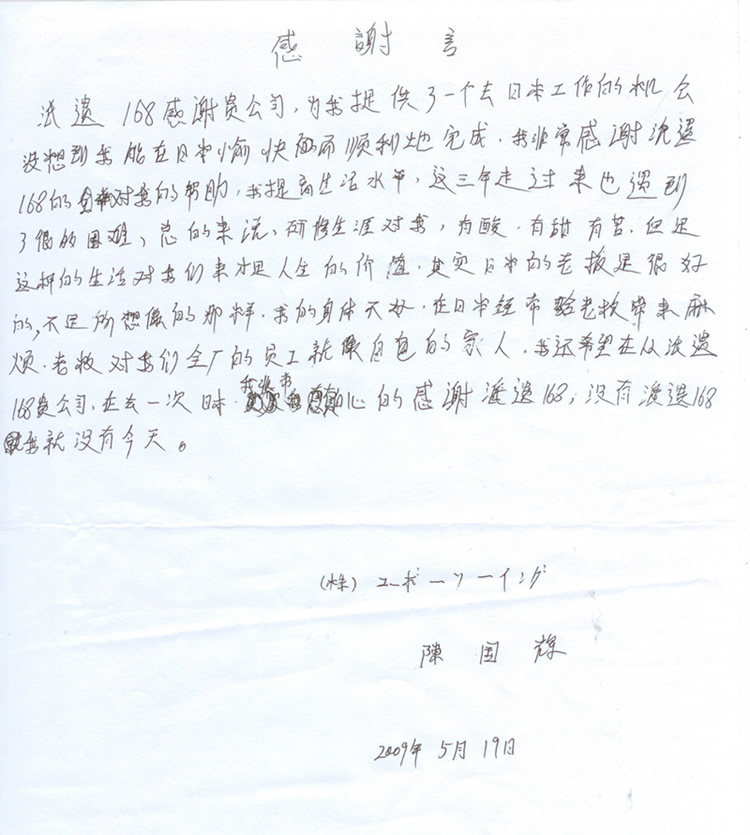 感謝言
派遣168感谢贵公司,为我提供了一个去日本工作的机会
没想到我能在日本愉快而顺利地完成.我非常感谢派遣
168的对我的帮助.我提高生活水平,这三年走过来也遇到
了很的困难、总的来说、研修生涯对我,有酸.有甜有苦.但是
这样的生活对我们来才是人生的价值.其实日本的老板是很好
的,不是所想像的那样.我的身体不好.在日本经常给老板带来麻
烦.老板对我们全厂的员工就像自己的家人.我还希望在从派遣
168贵公司.在去一次日本.我非常心的感谢派遣168;没有派遣168
我就没有今天。
(株) ユーボーソーイング
陳国辉
2009年5月19日